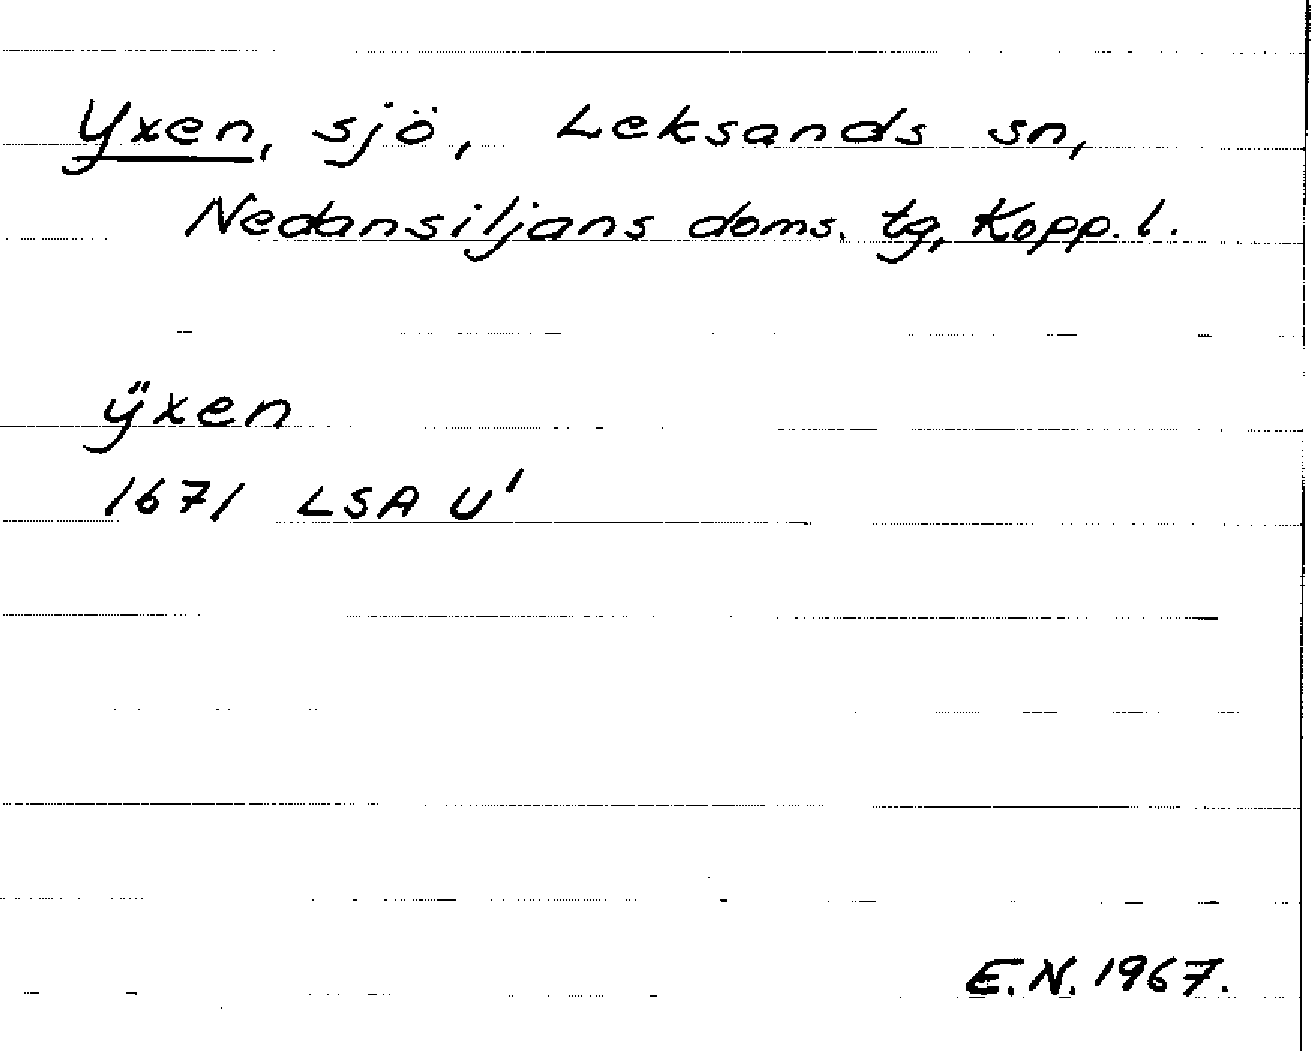 Yxen, sjö, Leksands sn,
Nedansiljans doms. tg, Kopp. l.
ÿxen
1671 LSA U'
E.N. 1967.